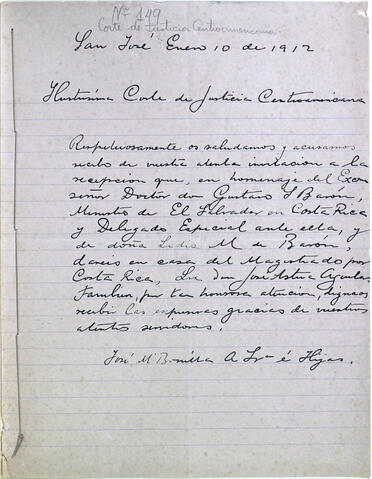 Nº 149
Corte de Justicia Centroamericana.
San José Enero 10 de 1912
Ilustrísima Corte de Justicia Centroamericana
Respetuosamente os saludamos y acusamos
recibo de vuestra atenta invitación a la
recepción que, en homenaje del Excmo
señor Doctor don Gustavo S Barón,
Ministro de El Salvador en Costa Rica
y Delegado Especial ante ella, y
de doña Lidia M. de Barón,
dareis en casa del Magistrado por
Costa Rica, Lic don José Astúa Aguilar
Familia, por tan honrosa atención, dignaos
recibir las expresivas gracias de vuestros
atentos servidores.
José Mª A Sra é Hijas.